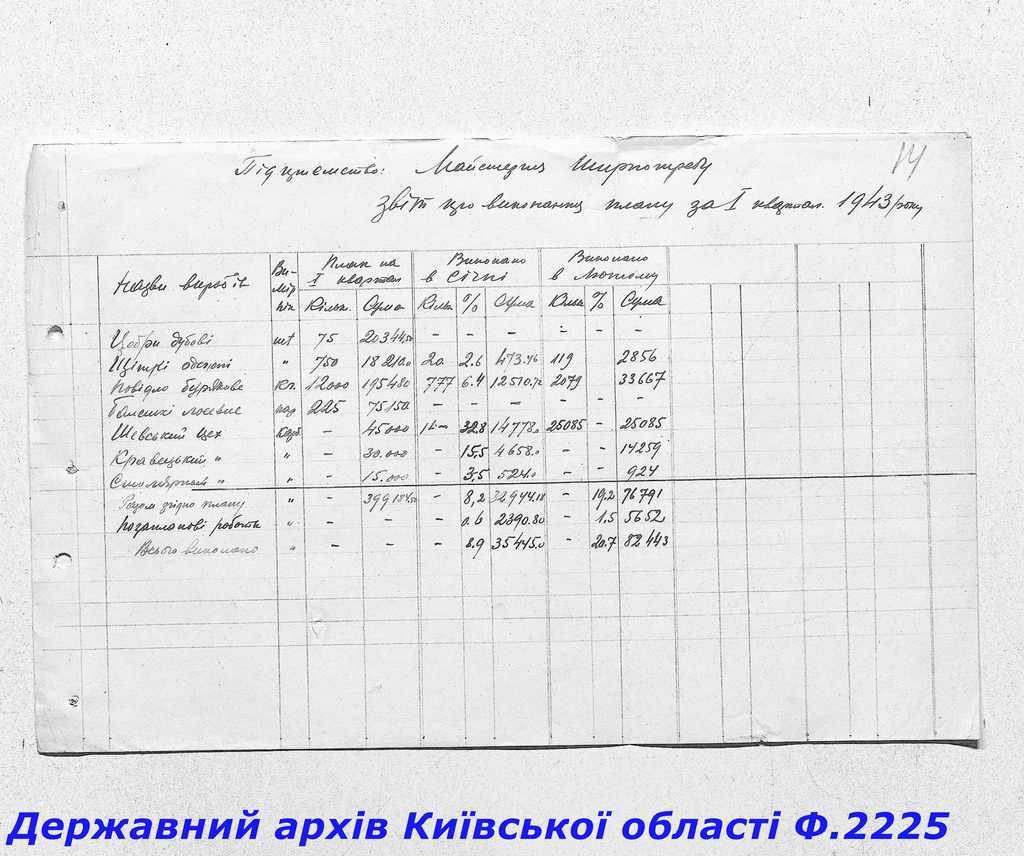 14
Підприємство: Майстерня Ширпотребу
Звіт про виконання плану за I квартал 1943 року
Назви виробів Вимірник План на I квартал Виконано в Січні Виконано в Лютому
Кільк. Сума Кільк % Сума Кільк % Сума
Цебри дубові шт 75 20344.50 - - - - - -
Щітки 〃 750 18210.0 20 2.6 473.76 119 2856
Повідло бурякове кг. 12000 195480 777 6.4 12510.72 2079 33667
пар 225 75150 - - - - - -
Шевський цех Карб. - 45000 32.8 14778.0 25085 - 25085
Кравецький 〃 〃 - 30.000 - 15.5 4658.0 - - 14259
Столярний 〃 〃 - 15.000 - 3.5 524.0 - - 924
Разом згідно плану 〃 - 399184.50 - 8,2 32944.18 - 19.2 76791
Позапланові роботи 〃 - - - 0.6 2390.80 - 1.5 5652
Всього виконано 〃 - - - 8.9 35445.0 - 20.7 82443
Державний архів Київської області Ф.2225